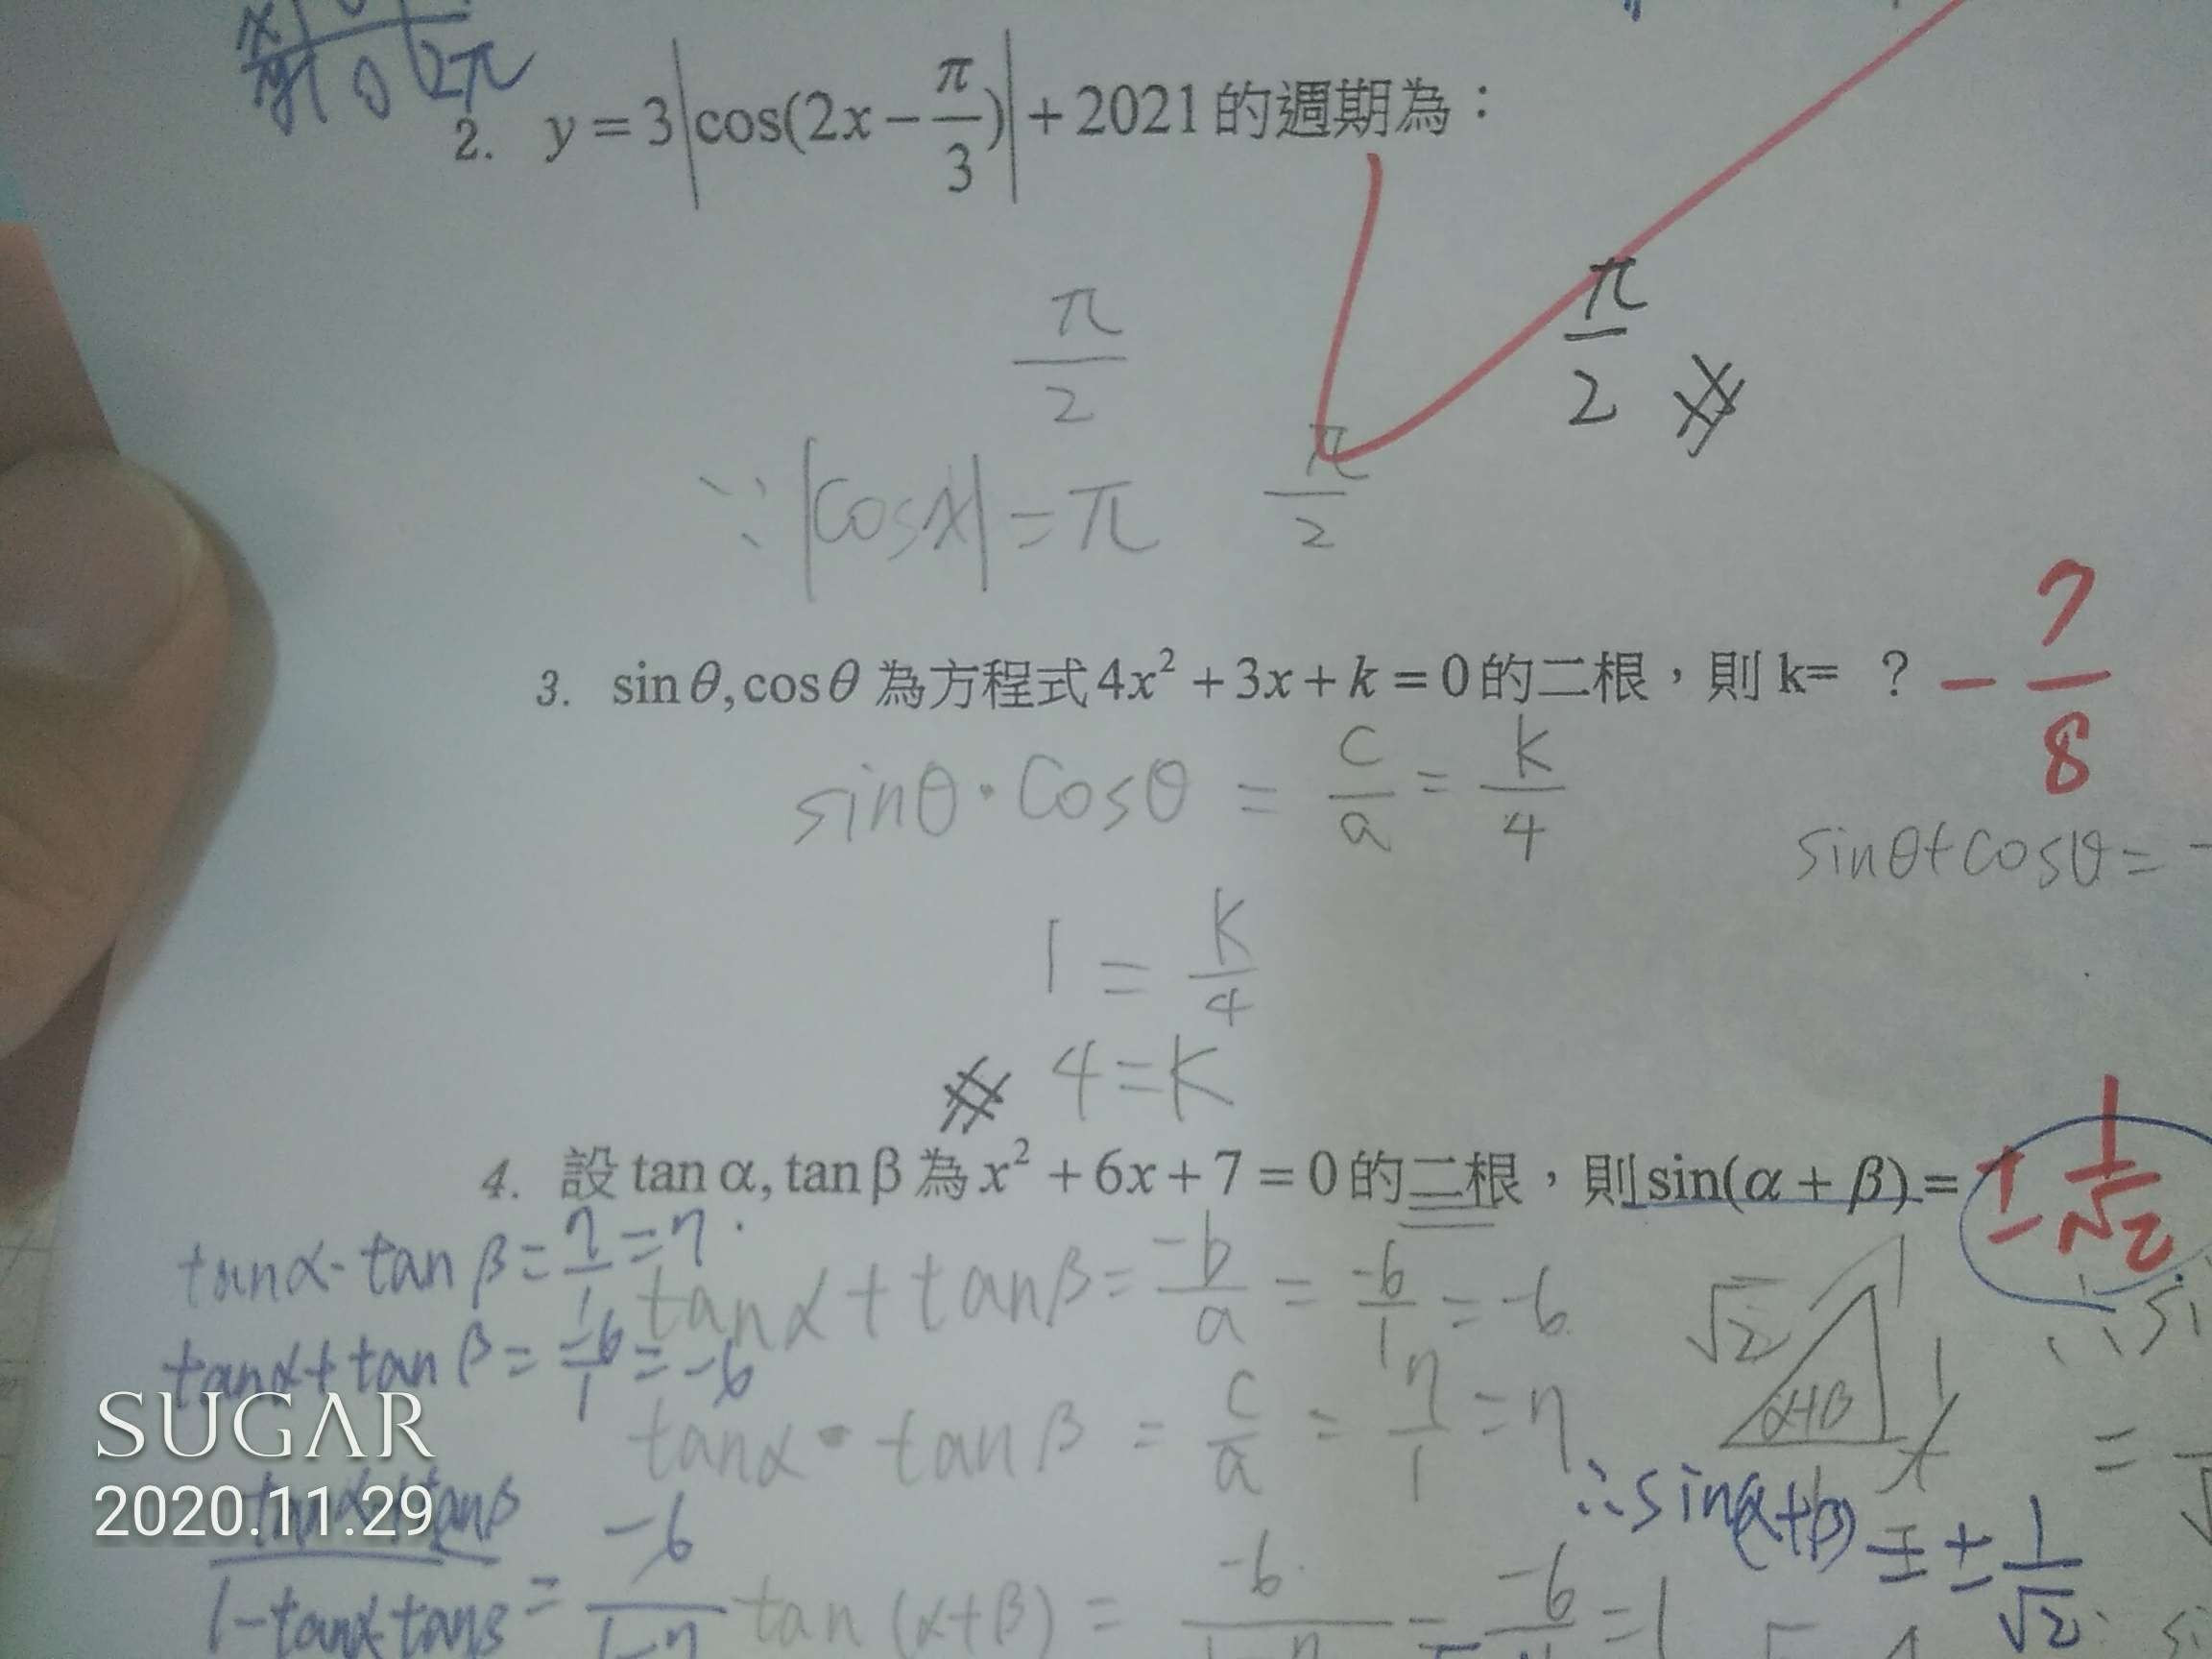 0 2π
2. y = 3|cos(2x − π/3)| + 2021 的週期為：
π/2
π/2
∵ |cosx| = π π/2
3. sinθ, cosθ 為方程式 4x² + 3x + k = 0 的二根，則 k= ？ − 7/8
sinθ · cosθ = c/a = k/4
sinθ + cosθ = -
1 = k/4
4 = k
4. 設 tan α, tan β 為 x² + 6x + 7 = 0 的二根，則 sin(α + β) = ± 1/√2
tanα · tan β = 7/1 = 7
tanα + tanβ = -b/a = -6/1 = -6
√2 1
∴ si
tanα + tan β = -6/1 = -6
α+β 1
tanα · tan β = c/a = 7/1 = 7
SUGAR
2020.11.29
∴ sin(α+β) = ± 1/√2
tanα + tanβ / 1 - tanα tanβ = -6 / 1-7
tan (α+β) = -6 / 1-7 = -6 = 1